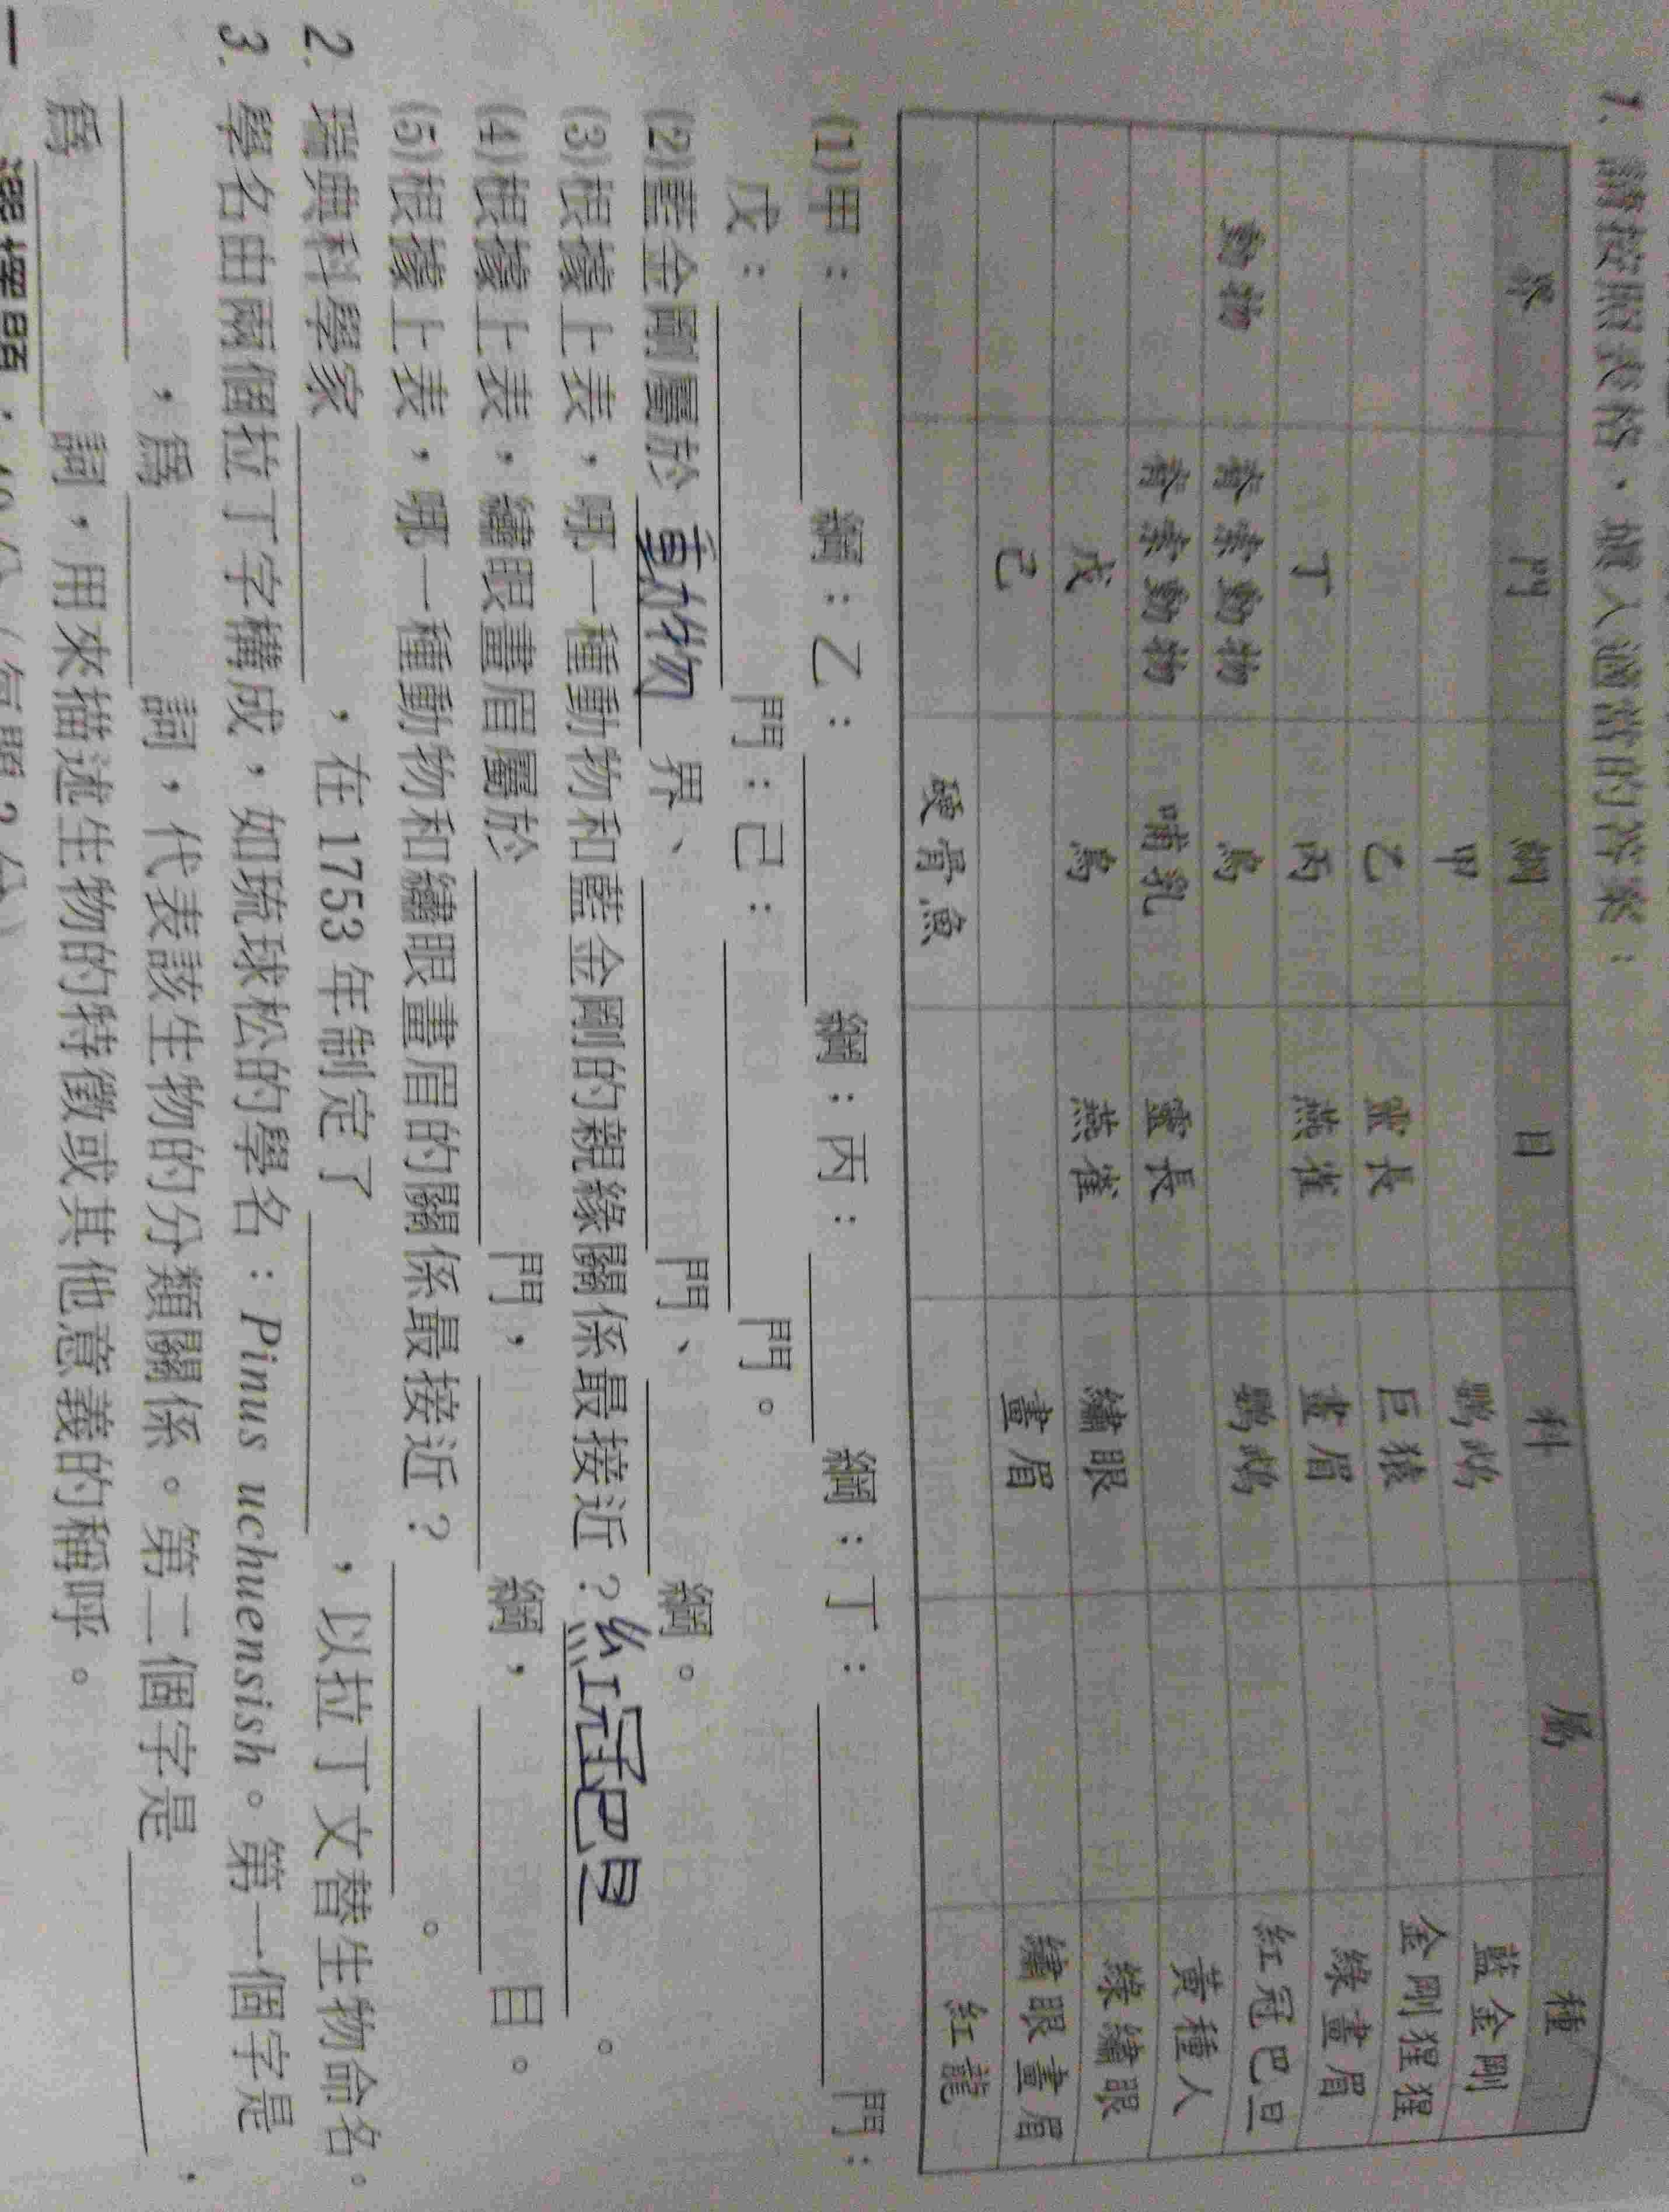 1. 請按照表格，填入適當的答案：
界 門 綱 目 科 屬 種
甲 鸚鵡 藍金剛
乙 靈長 巨猿 金剛猩猩
丁 丙 燕雀 畫眉 綠畫眉
動物 脊索動物 鳥 鸚鵡 紅冠巴旦
脊索動物 哺乳 靈長 黃種人
戊 鳥 燕雀 繡眼 綠繡眼
己 畫眉 繡眼畫眉
硬骨魚 紅龍
(1)甲： 綱；乙： 綱；丙： 綱；丁： 門；
戊： 門；己： 門。
(2)藍金剛屬於 動物 界、 門、 綱。
(3)根據上表，哪一種動物和藍金剛的親緣關係最接近？ 紅冠巴旦 。
(4)根據上表，繡眼畫眉屬於 門， 綱， 目。
(5)根據上表，哪一種動物和繡眼畫眉的關係最接近？ 。
2. 瑞典科學家 ，在1753年制定了 ，以拉丁文替生物命名。
3. 學名由兩個拉丁字構成，如琉球松的學名：Pinus uchuensish。第一個字是
，為 詞，代表該生物的分類關係。第二個字是 ，
為 詞，用來描述生物的特徵或其他意義的稱呼。
一 選擇題：40分（每題2分）